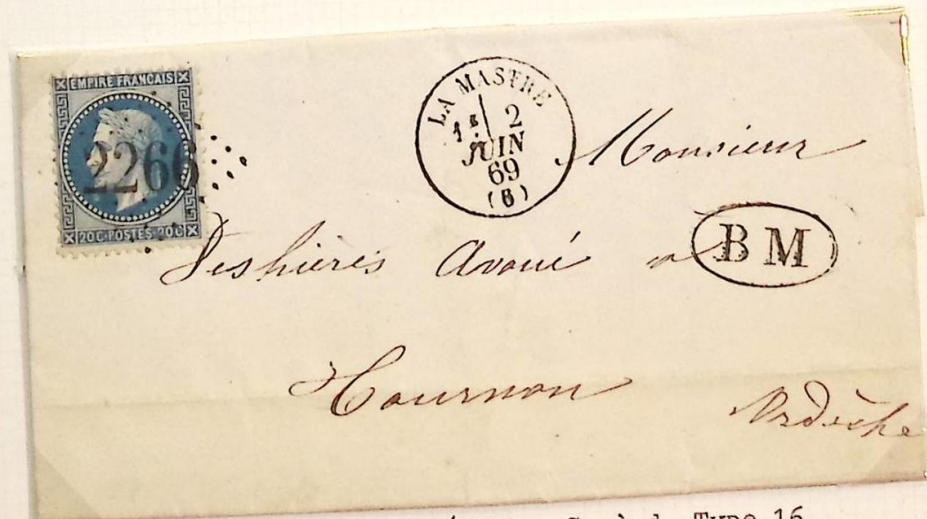 EMPIRE FRANCAIS
2266
20C·POSTES·20C
LA MASTRE
1E 2
JUIN
69
(6)
Monsieur
Avoué a
BM
Tournon
Ardèche
Type 16